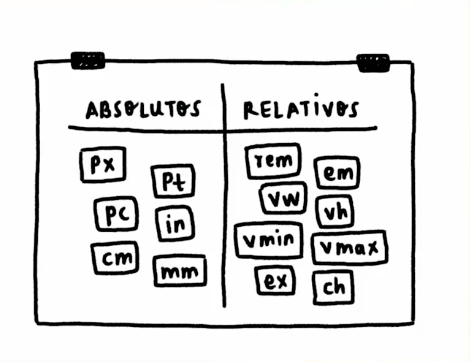 ABSOLUTOS
px
pt
pc
in
cm
mm
RELATIVOS
rem
em
vw
vh
vmin
vmax
ex
ch